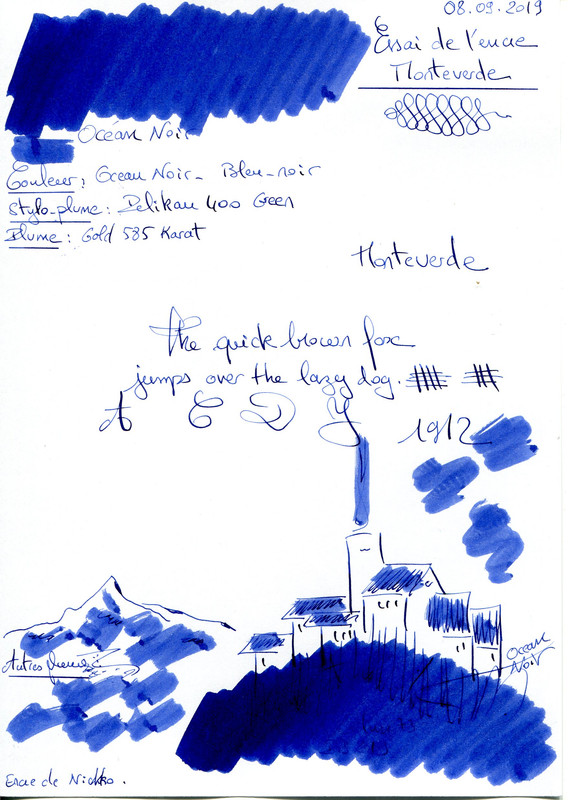 08.09.2019
Essai de l'encre
Monteverde
Océan Noir
Couleur : Ocean Noir - Bleu-noir
Stylo-plume : Pelikan 400 Green
Plume : Gold 585 Karat
Monteverde
The quick brown fox
jumps over the lazy dog.
A E D Y
1912
Ocean
Noir
Autres
Encre de Nickko.